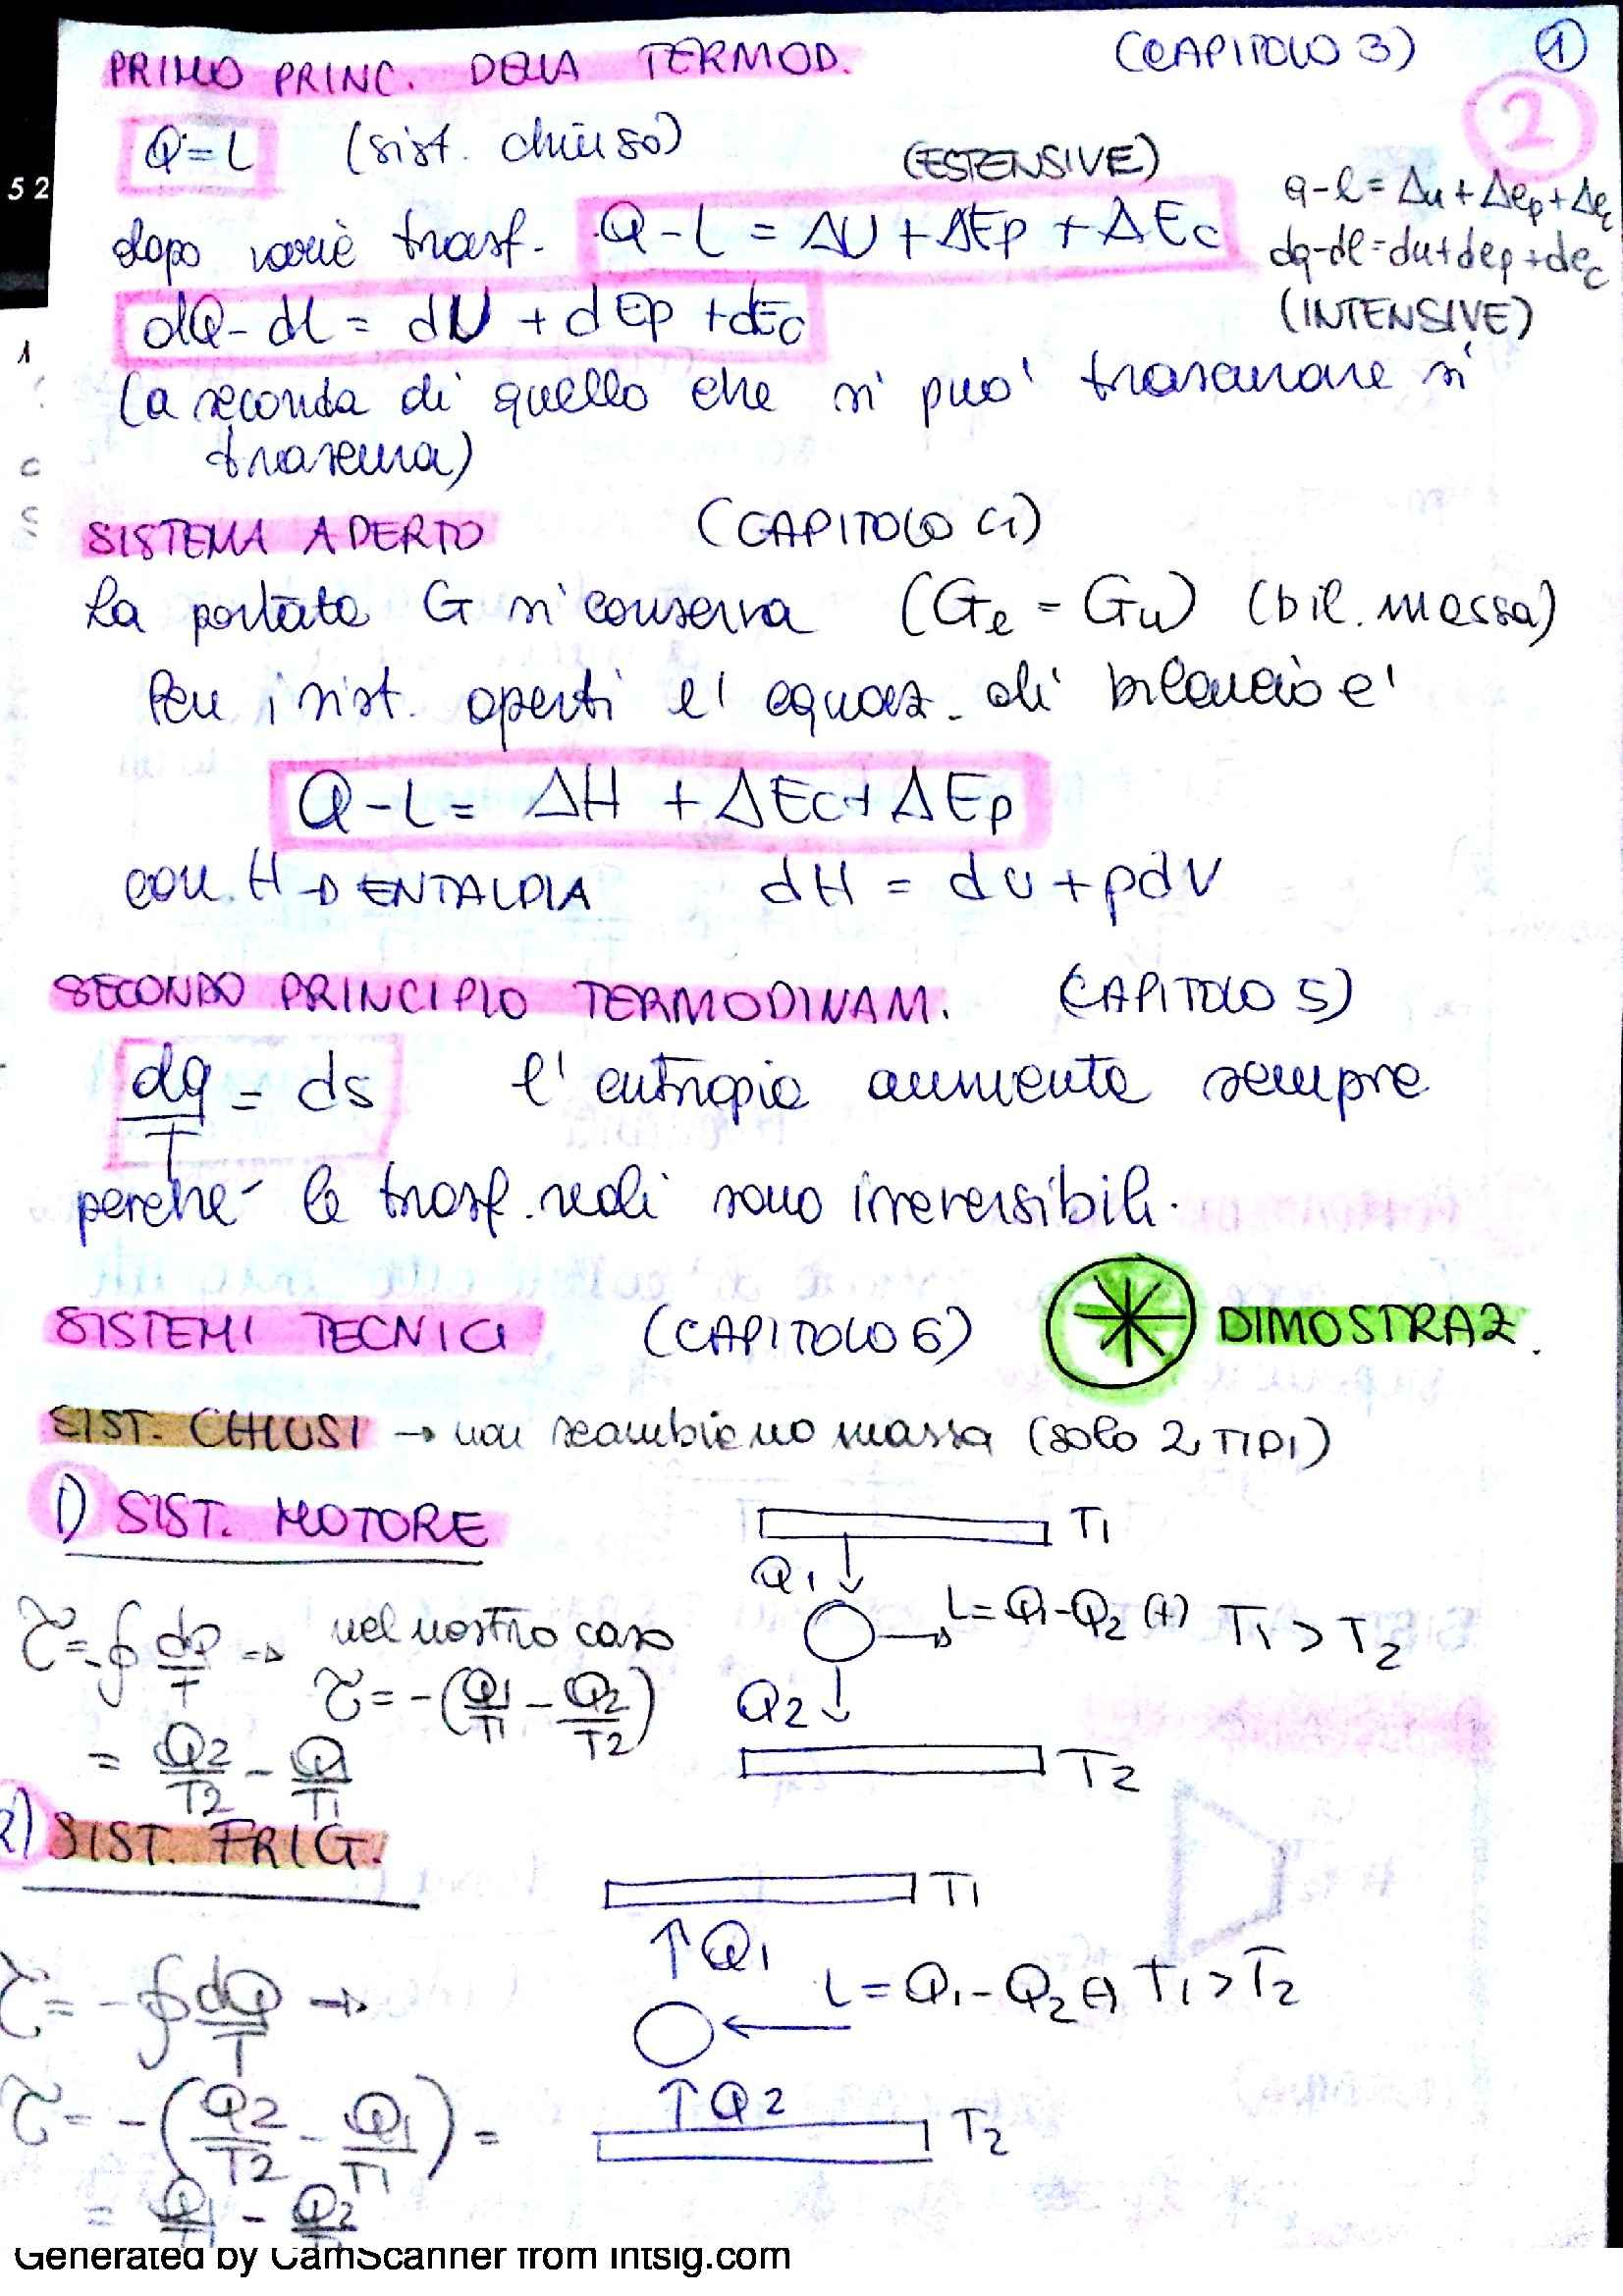 PRIMO PRINC. DELLA TERMOD. (CAPITOLO 3) 1
2
Q=L (sist. chiuso)
(ESTENSIVE)
52
q-l = Δu + Δep + Δec
dopo varie trasf. Q-L = ΔU + ΔEp + ΔEc
dq-dl = du + dep + dec
dQ - dL = dU + dEp + dEc
(INTENSIVE)
1
(a seconda di quello che si può trascurare si
trascura)
SISTEMA APERTO (CAPITOLO 4)
La portata G si conserva (Ge = Gu) (bil. massa)
Per i sist. aperti l'equaz. di bilancio e'
Q - L = ΔH + ΔEc + ΔEp
con H → ENTALPIA dH = dU + pdV
SECONDO PRINCIPIO TERMODINAM. (CAPITOLO 5)
dq/T = ds l'entropia aumenta sempre
perché le trasf. reali sono irreversibili.
SISTEMI TECNICI (CAPITOLO 6) * DIMOSTRAZ.
SIST. CHIUSI → non scambiano massa (solo 2 TIPI)
1) SIST. MOTORE
T1
Q1
L = Q1 - Q2 (+) T1 > T2
τ = -∮ dQ/T → nel nostro caso
τ = -(Q1/T1 - Q2/T2)
Q2
= Q2/T2 - Q1/T1
T2
2) SIST. FRIG.
T1
↑ Q1
τ = -∮ dQ/T →
L = Q1 - Q2 (-) T1 > T2
↑ Q2
τ = -(Q2/T2 - Q1/T1) =
T2
= Q1/T1 - Q2/T2
Generated by CamScanner from intsig.com